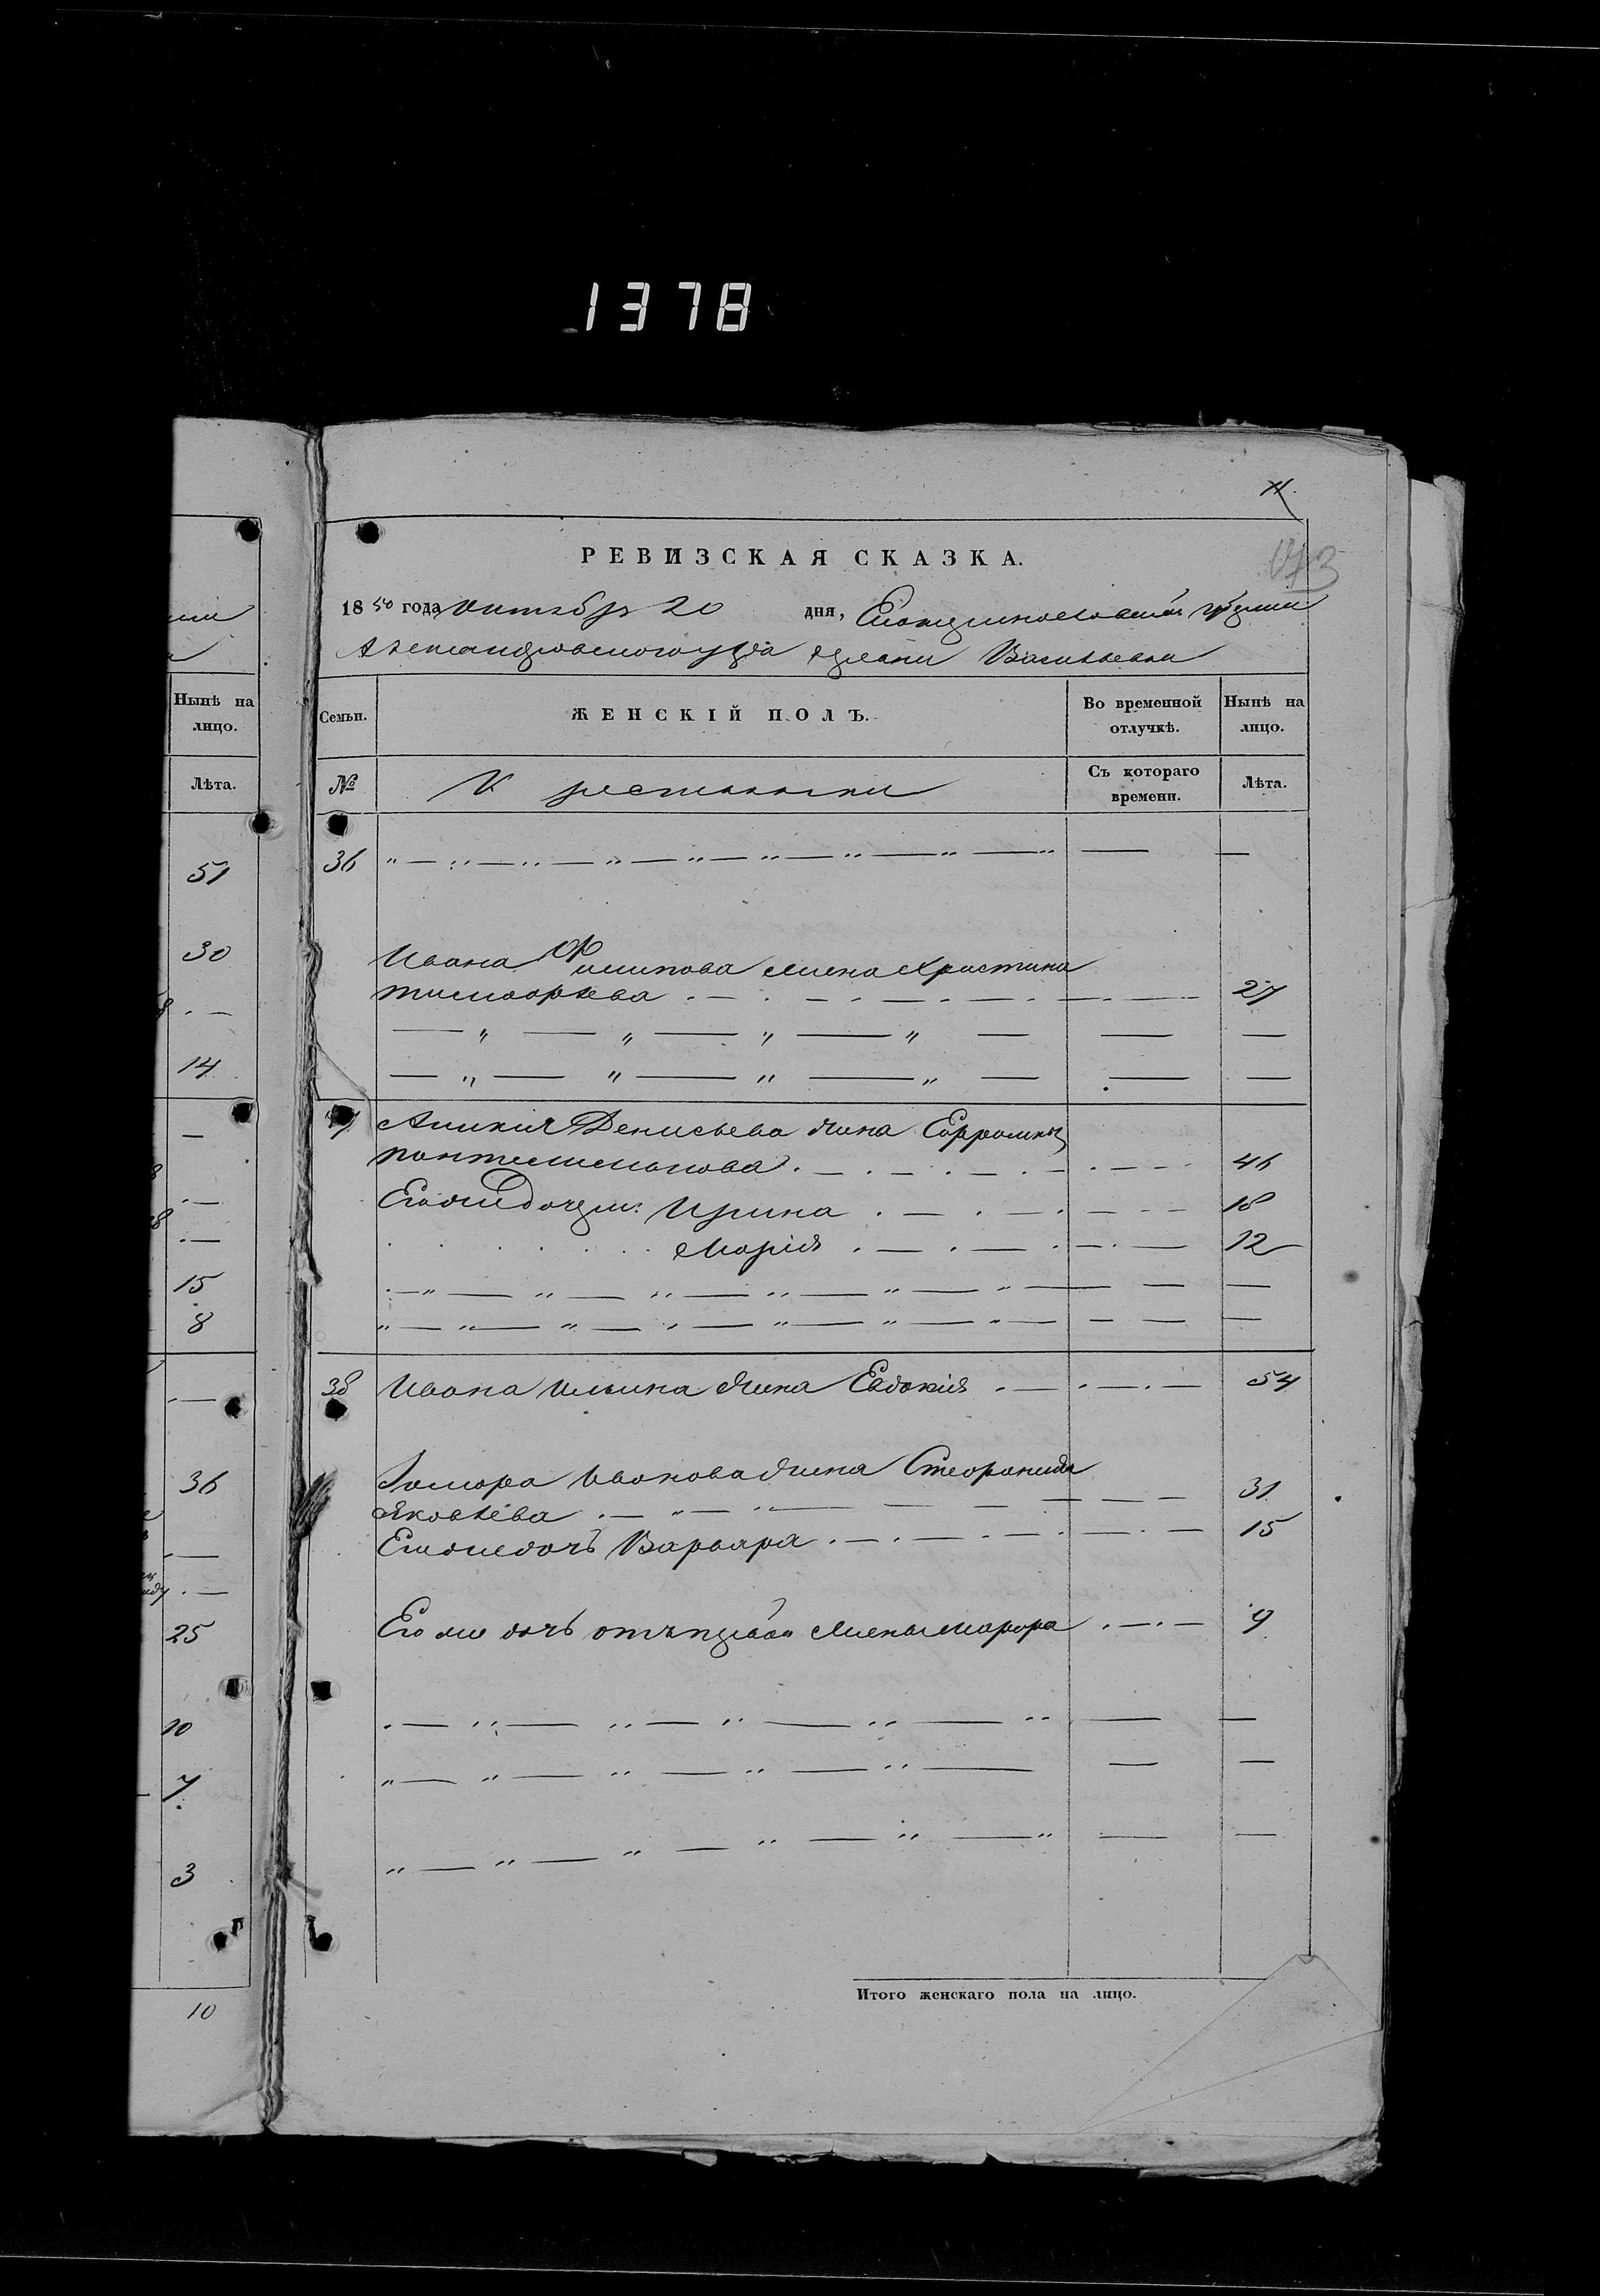 1378
11.
173
РЕВИЗСКАЯ СКАЗКА.
1850 года октября 20 дня, Екатеринославской губернии
Александровского уѣзда деревни Васильевки
Нынѣ на лицо.
Семьи.
ЖЕНСКІЙ ПОЛЪ.
Во временной отлучкѣ.
Нынѣ на лицо.
Лѣта.
№
Крестьянки
Съ котораго времени.
Лѣта.
51
30
14
15
8
36
25
10
7
3
10
36
Ивана Филипова жена Христина
Тимофѣева 27
37 Аникія Денисьева жена Ефросинья
Пантелимонова 46
Его же дочери: Ирина 18
Марія 12
38 Ивана Ильина жена Евдокія 54
Захара Иванова жена Стефанида
Яковлева 31
Его же дочь Варвара 15
Его же дочь отъ первой жены Марфа 9
Итого женскаго пола на лицо.